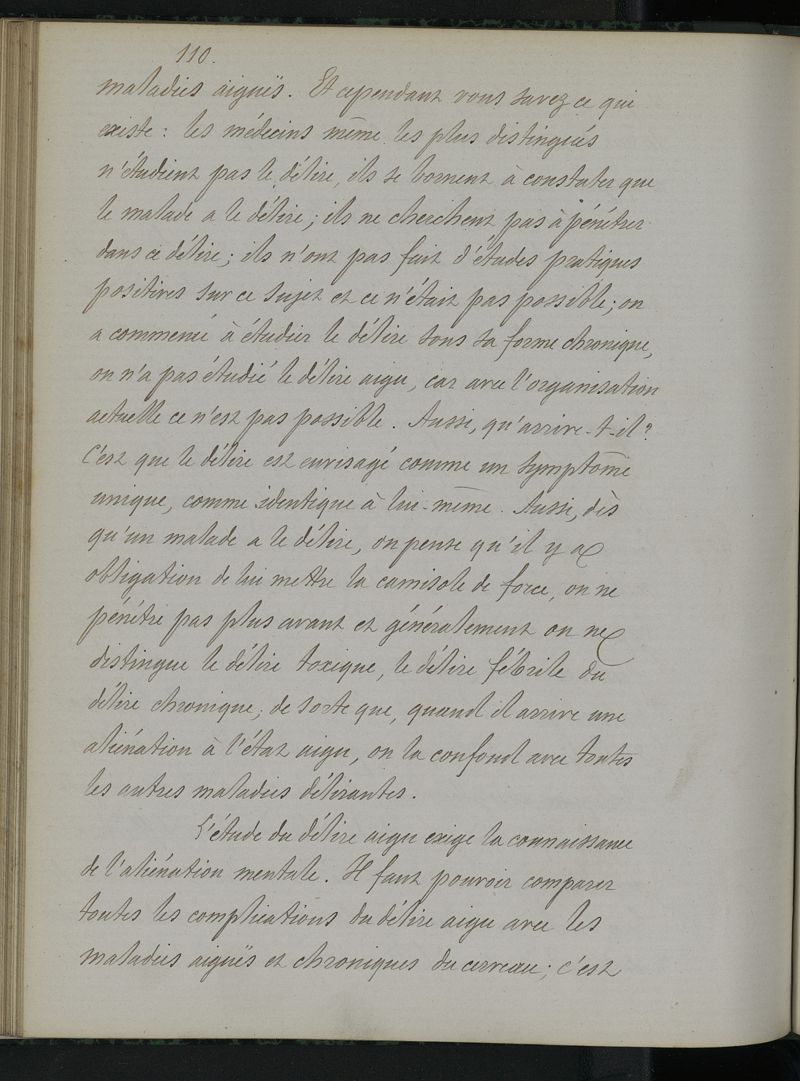 110.
maladies aiguës. Et cependant vous savez ce qui
existe : les médecins même les plus distingués
n'étudient pas le délire, ils se bornent à constater que
le malade a le délire ; ils ne cherchent pas à pénétrer
dans ce délire ; ils n'ont pas fait d'études pratiques
positives sur ce sujet et ce n'était pas possible ; on
a commencé à étudier le délire sous sa forme chronique,
on n'a pas étudié le délire aigu, car avec l'organisation
actuelle ce n'est pas possible. Aussi, qu'arrive-t-il ?
C'est que le délire est envisagé comme un symptôme
unique, comme identique à lui-même. Aussi, dès
qu'un malade a le délire, on pense qu'il y a
obligation de lui mettre la camisole de force, on ne
pénètre pas plus avant et généralement on ne
distingue le délire toxique, le délire fébrile du
délire chronique ; de sorte que, quand il arrive une
aliénation à l'état aigu, on la confond avec toutes
les autres maladies délirantes.
L'étude du délire aigu exige la connaissance
de l'aliénation mentale. Il faut pouvoir comparer
toutes les complications du délire aigu avec les
maladies aiguës et chroniques du cerveau ; c'est